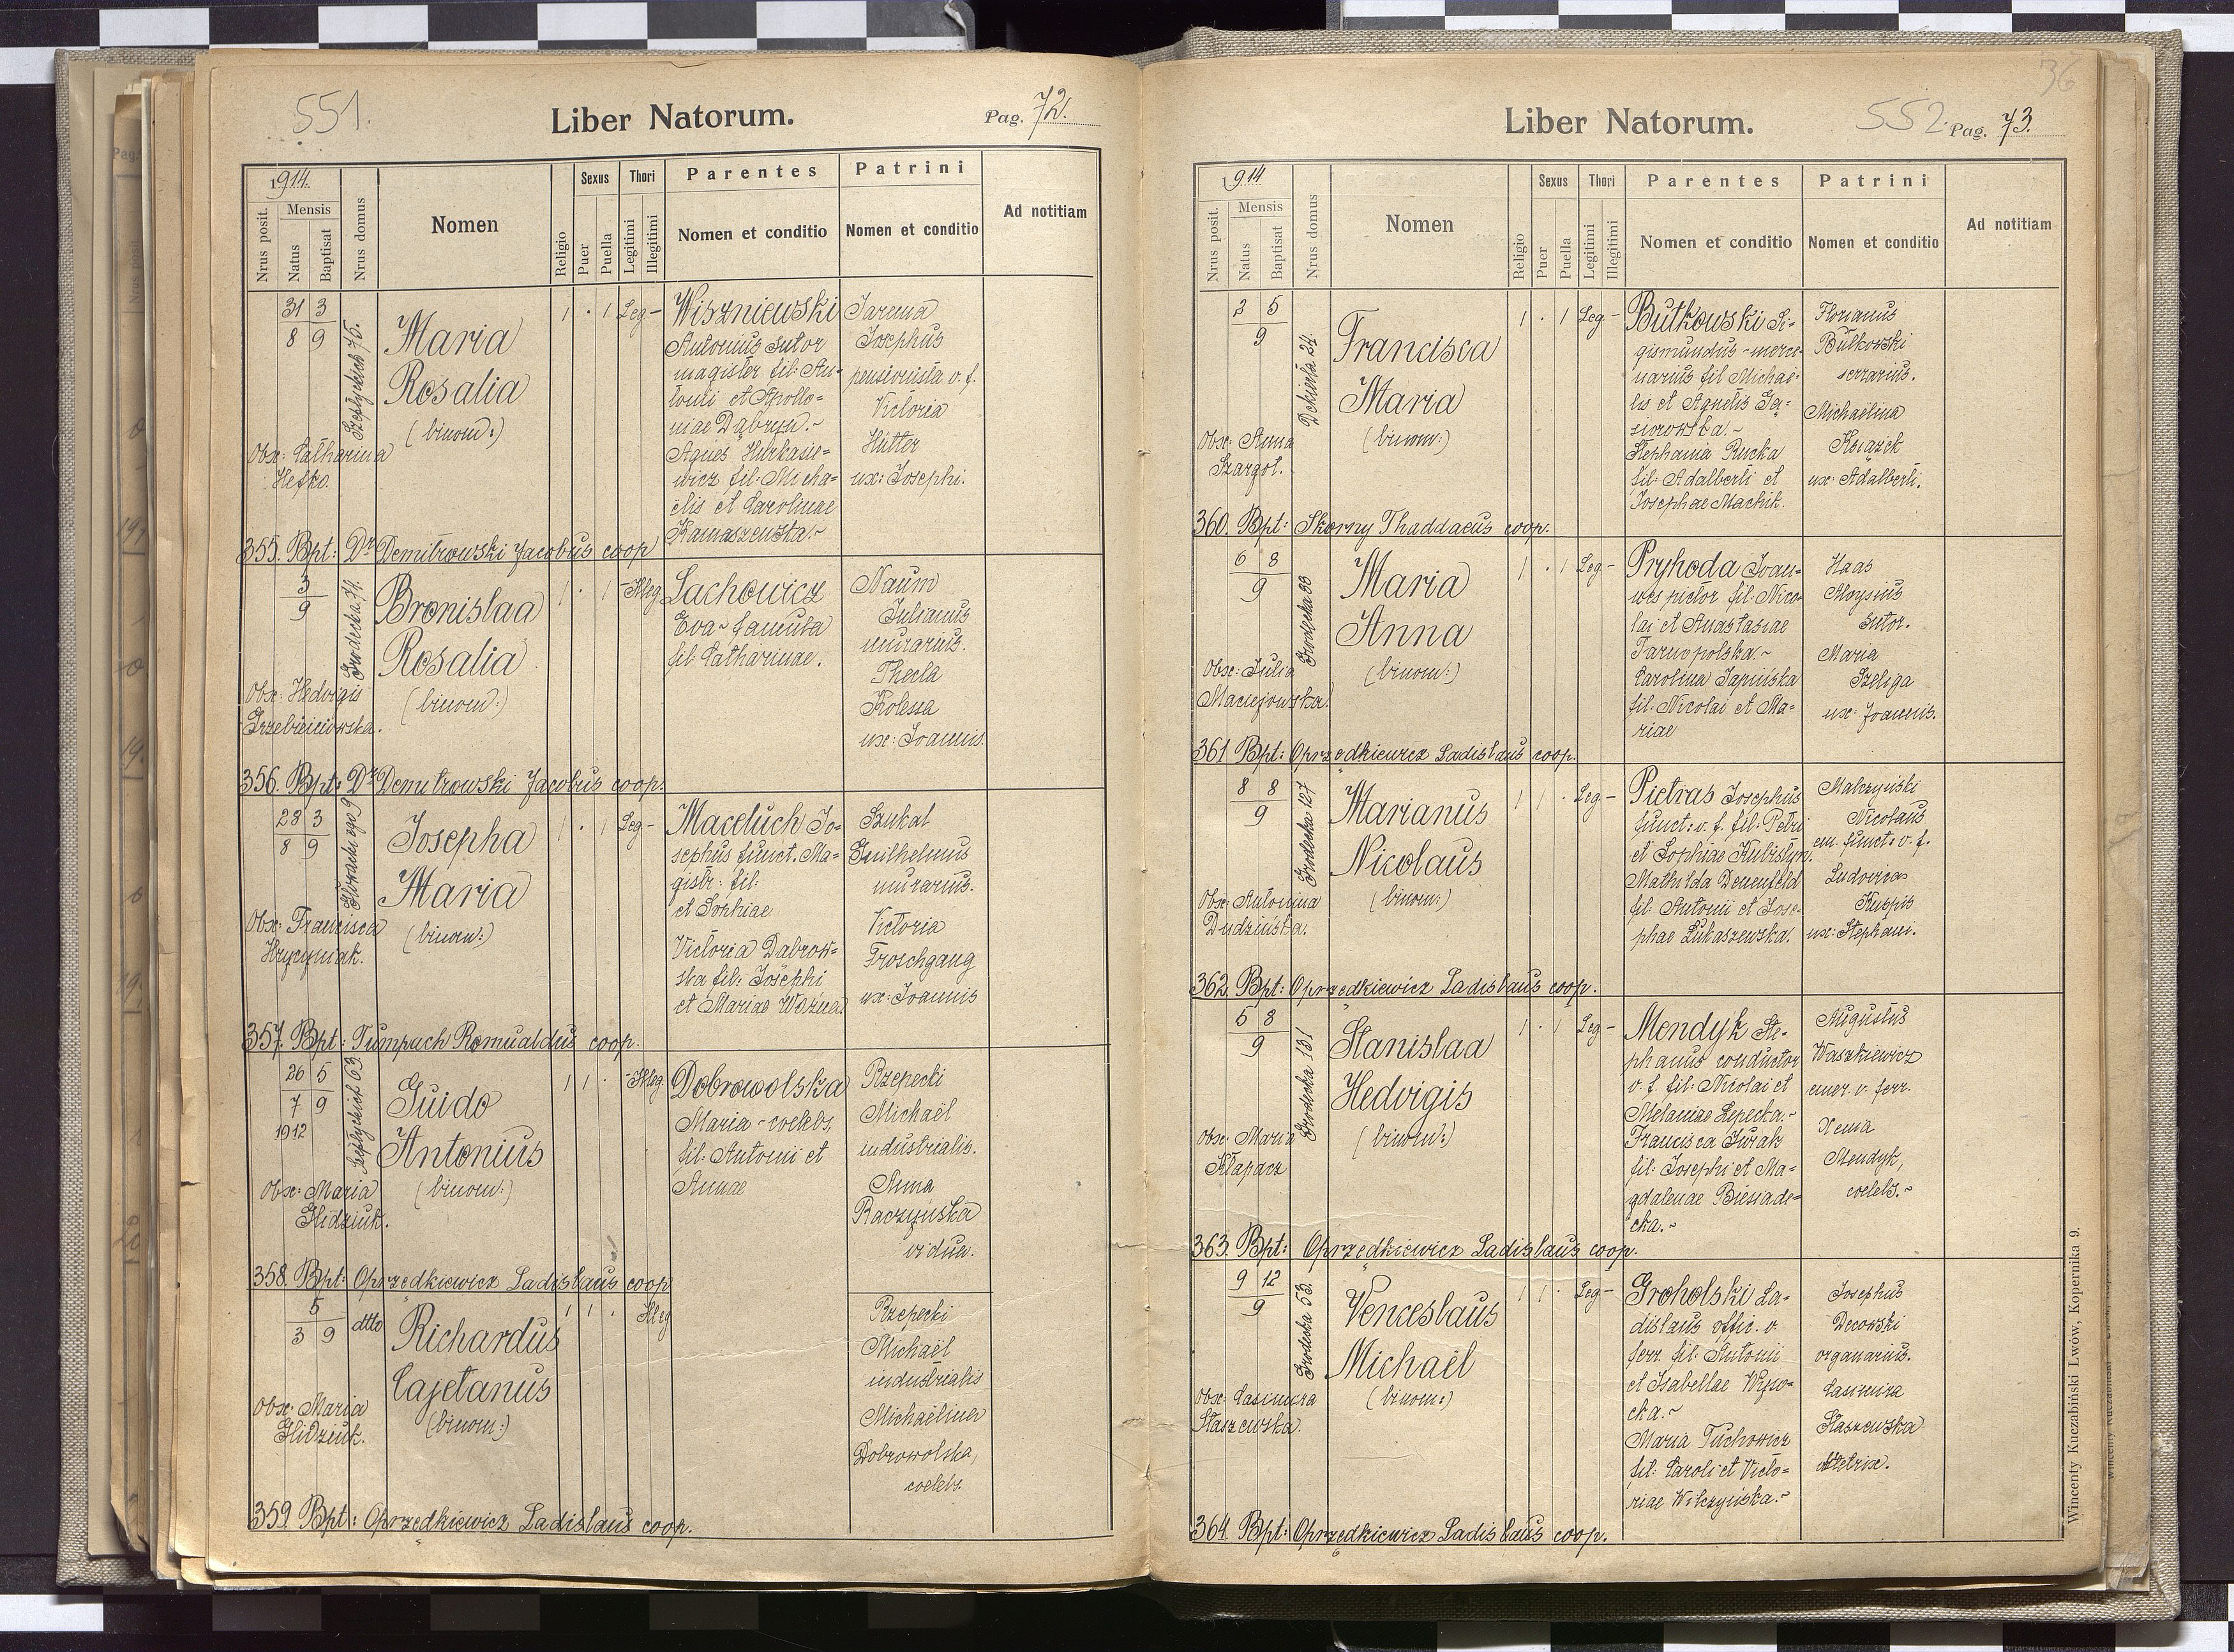 551.
Liber Natorum.
Pag. 72.
1914.
Nrus posit.
Mensis
Natus
Baptisat
Nrus domus
Nomen
Religio
Sexus
Puer
Puella
Thori
Legitimi
Illegitimi
Parentes
Nomen et conditio
Patrini
Nomen et conditio
Ad notitiam
31 3
8 9
Szeptyckich 75.
Maria
Rosalia
(binom:)
Obx: Catharina
Hefko.
1 · 1 Leg -
Wiszniewski
Antonius sutor
magister fil: An-
tonii et Apollo=
niae Dąbrym.~
Agnes Hurkasie=
wicz fil: Micha=
ëlis et Carolinae
Kamaszewska.~
Jarema
Josephus
pensionista v. f.
Victoria
Hütter
ux: Josephi.
355. Bpt: Dr Demitrowski Jacobus coop
3
9
Grodecka 71.
Bronislaa
Rosalia
(binom:)
Obx: Hedvigis
Grzebieniowska.
1 · 1 - Illeg
Lachowicz
Eva ~ famula
fil. Catharinae.
Naum
Julianus
murarius.
Thecla
Kolessa
ux: Joannis.
356. Bpt: Dr Demitrowski Jacobus coop.
23 3
8 9
Głowackiego 9
Josepha
Maria
(binom:)
Obx: Francisca
Hrycyniak.
1 · 1 Leg -
Maceluch Jo=
sephus funct. Ma=
gistr: fil:
et Sophiae
Victoria Dabrow=
ska fil: Josephi
et Mariae Wozna
Szukal
Guilhelmus
murarius.
Victoria
Froschgang
ux: Joannis
357. Bpt: Tumpach Romualdus coop.
26 5
7 9
1912
Szeptyckich 63
Guido
Antonius
(binom:)
Obx: Maria
Hidziuk.
1 1 · - Illeg.
Dobrowolska
Maria - coelebs,
fil: Antoni et
Annae
Rzepecki
Michaël
industrialis.
Anna
Raczyńska
vidua.
358. Bpt: Oprzędkiewicz Ladislaus coop
5
3 9
dtto
Richardus
Cajetanus
(binom:)
Obx: Maria
Hidziuk.
1 1 · Illeg
Rzepecki
Michaël
industrialis
Michaëlina
Dobrowolska,
coelebs.
359. Bpt: Oprzędkiewicz Ladislaus coop.
36
Liber Natorum.
552.
Pag. 73.
1914
Nrus posit.
Mensis
Natus
Baptisat
Nrus domus
Nomen
Religio
Sexus
Puer
Puella
Thori
Legitimi
Illegitimi
Parentes
Nomen et conditio
Patrini
Nomen et conditio
Ad notitiam
2 5
9
Dekierta 24.
Francisca
Maria
(binom:)
Obx: Anna
Szargot.
1 · 1 Leg -
Butkowski Si-
gismundus - merce-
narius fil Michaë-
lis et Agnetis Gą=
siorowska.~
Stephania Rucka
fil: Adalberti et
Josephae Machik.
Florianus
Bulkowski
serrarius.
Michaëlina
Książek
ux: Adalberti.
360. Bpt: Skorny Thaddaeus coop.
6 8
9
Grodecka 93
Maria
Anna
(binom:)
Obx: Julia
Maciejowska.
1 · 1 Leg -
Pryhoda Joan=
nes pictor fil: Nico-
lai et Anastasiae
Tarnopolska.~
Carolina Japińska
fil: Nicolai et Ma=
riae
Haas
Aloysius
sutor.
Maria
Szeliga
ux: Joannis.
361 Bpt: Oprzędkiewicz Ladislaus coop.
8 8
9
Grodecka 127
Marianus
Nicolaus
(binom:)
Obx: Antonina
Dudzińska.
1 1 · Leg -
Pietras Josephus
funct: v. f. fil: Petri
et Sophiae Kubistyn.
Mathilda Denenfeld
fil: Antonii et Jose-
phae Łukaszewska.
Malczyński
Nicolaus
em. funct: v. f.
Ludovica
Kuspis
ux: Stephani.
362. Bpt: Oprzędkiewicz Ladislaus coop.
5 8
9
Grodecka 131
Stanislaa
Hedvigis
(binom:)
Obx: Maria
Kłapacz
1 · 1 Leg -
Mendyk Ste-
phanus conductor
v. f. fil: Nicolai et
Melaniae Lepecka.~
Francisca Jurak
fil: Josephi et Ma=
gdalenae Biesiade=
cka.~
Augustus
Waszkiewicz
emer. v. ferr.
Xenia
Mendyk,
coelebs.~
363. Bpt: Oprzędkiewicz Ladislaus coop.
9 12
9
Grodecka 53.
Venceslaus
Michaël
(binom:)
Obx: Casimira
Staszewska.
1 1 · Leg -
Groholski La-
dislaus offic. v.
ferr. fil: Antonii
et Isabellae Wyso-
cka.~
Maria Tuchowicz
fil: Caroli et Victo=
riae Wilczyńska.~
Josephus
Decowski
organarius.
Casimira
Staszewska
obstetrix.
364. Bpt: Oprzędkiewicz Ladislaus coop.
Wincenty Kuczabiński Lwów, Kopernika 9.